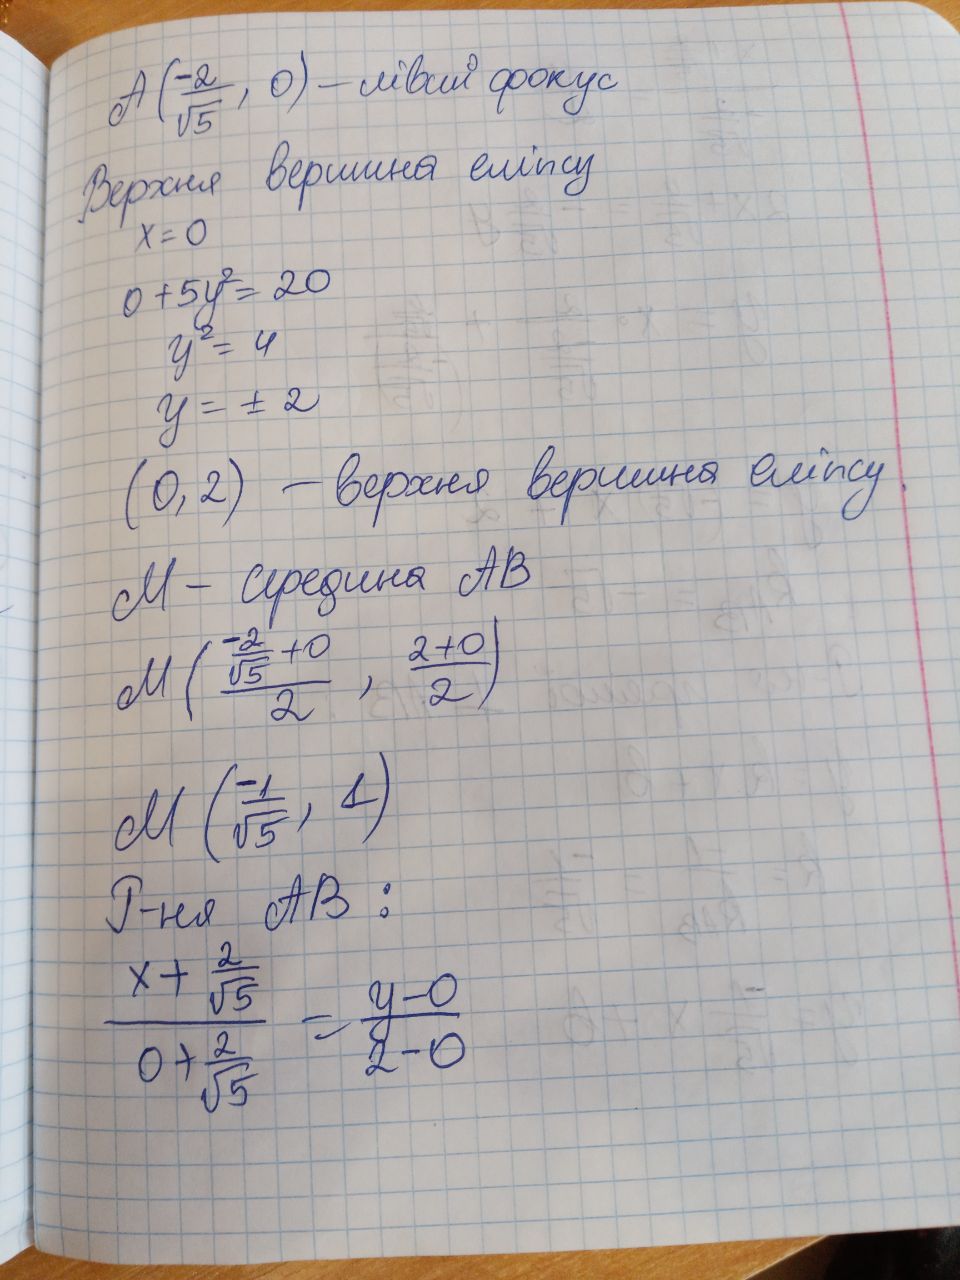 A(-2/√5, 0) – лівий фокус
Верхня вершина еліпсу
x = 0
0 + 5y² = 20
y² = 4
y = ± 2
(0, 2) – верхня вершина еліпсу
M – середина AB
M((-2/√5 + 0)/2, (2+0)/2)
M(-1/√5, 1)
Р-ня AB :
(x + 2/√5)/(0 + 2/√5) = (y – 0)/(2 – 0)